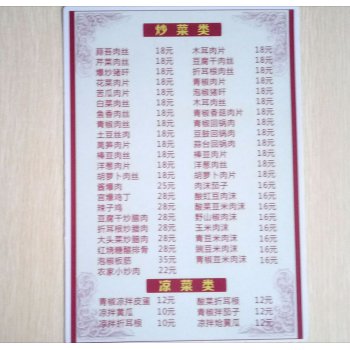 炒菜类
蒜苔肉丝 18元 木耳肉片 18元
芹菜肉丝 18元 豆腐干肉丝 18元
爆炒猪肝 18元 折耳根肉丝 18元
花菜肉片 18元 青椒肉片 18元
苦瓜肉片 18元 泡椒猪肝 18元
白菜肉丝 18元 木耳肉丝 18元
鱼香肉丝 18元 青椒香菇肉片 18元
青椒肉丝 18元 青椒回锅肉 18元
土豆肉丝 18元 豆豉回锅肉 18元
莴笋肉片 18元 蒜台回锅肉 18元
棒豆肉丝 18元 棒豆肉片 18元
洋葱肉片 18元 洋葱肉丝 18元
胡萝卜肉丝 18元 胡萝卜肉片 18元
酱爆肉 25元 肉沫茄子 16元
宫爆鸡丁 28元 酸豇豆肉沫 16元
辣子鸡 28元 酸菜豆米肉沫 16元
豆腐干炒腊肉 28元 野山椒肉沫 16元
折耳根炒腊肉 28元 玉米肉沫 16元
大头菜炒腊肉 28元 青豆米肉沫 16元
红烧糖醋排骨 28元 豌豆米肉沫 16元
泡椒板筋 35元 青椒豆米肉沫 16元
农家小炒肉 22元
凉菜类
青椒凉拌皮蛋 12元 酸菜折耳根 12元
凉拌黄瓜 10元 青椒拌茄子 12元
凉拌折耳根 10元 凉拌炝黄瓜 12元